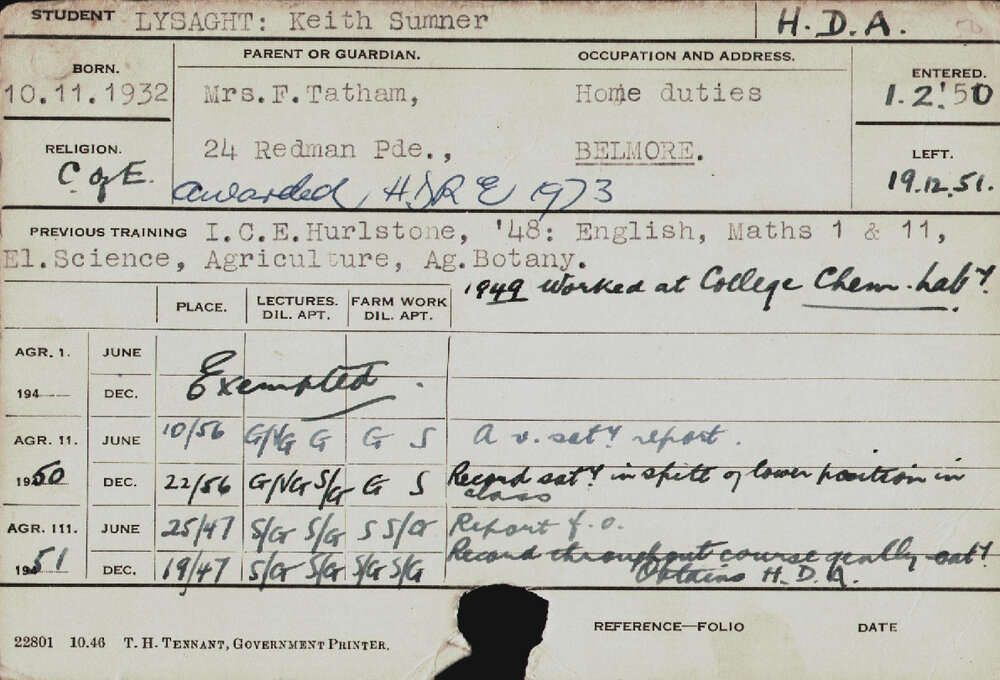 STUDENT LYSAGHT: Keith Sumner H.D.A.
BORN. PARENT OR GUARDIAN. OCCUPATION AND ADDRESS. ENTERED.
10.11.1932 Mrs.F.Tatham, Home duties 1.2.'50
RELIGION. 24 Redman Pde., BELMORE. LEFT.
C of E. 19.12.51.
awarded H.D.R.E 1973
PREVIOUS TRAINING I.C.E.Hurlstone, '48: English, Maths 1 & 11,
El.Science, Agriculture, Ag.Botany.
1949 Worked at College Chem. Laby.
PLACE. LECTURES. DIL. APT. FARM WORK DIL. APT.
AGR. I. JUNE
194 DEC. Exempted.
AGR. II. JUNE 10/56 G/VG G G S A v. saty report.
1950 DEC. 22/56 G/VG S/G G S Record saty in spite of lower position in
class
AGR. III. JUNE 25/47 S/G S/G S S/G Report f.o.
1951 DEC. 19/47 S/G S/G S/G S/G Record throughout course geally saty
Obtains H.D.A.
REFERENCE—FOLIO DATE
22801 10.46 T. H. TENNANT, GOVERNMENT PRINTER.